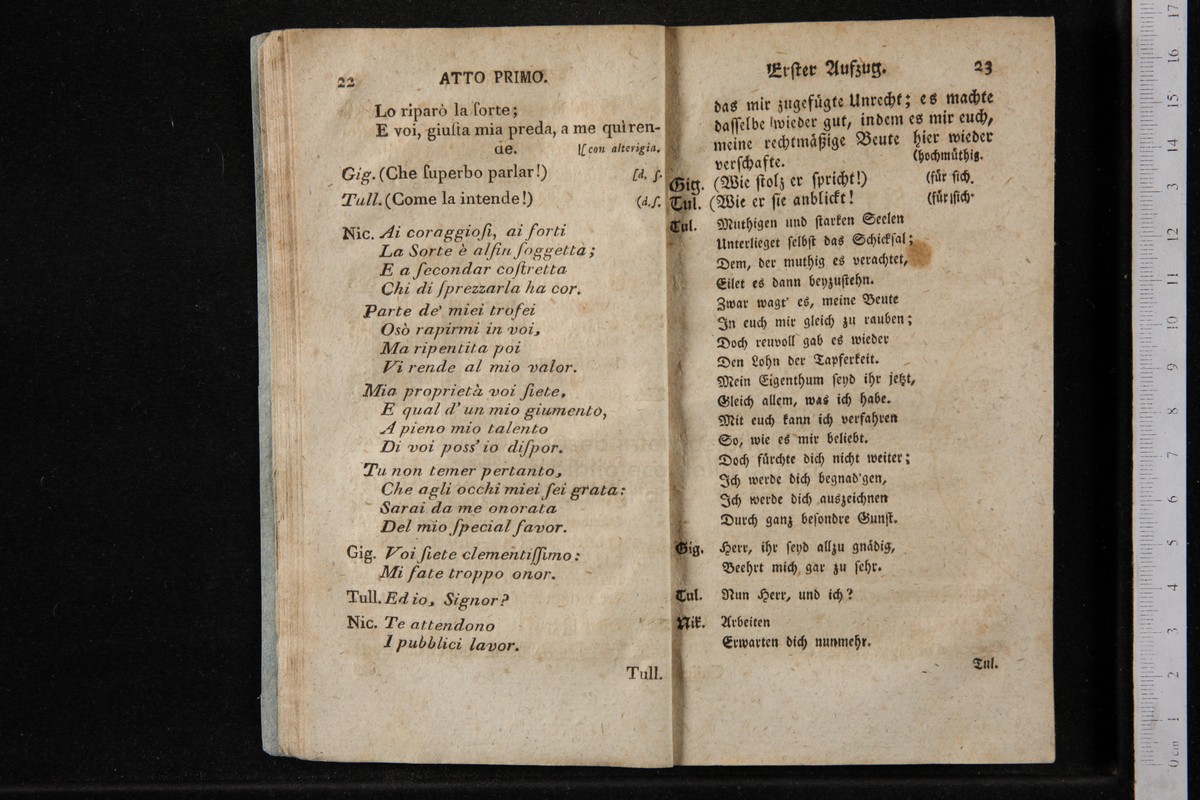 22 ATTO PRIMO.
Lo riparò la ſorte;
E voi, giuſta mia preda, a me qui ren-
de. [con alterigia.
Gig. (Che ſuperbo parlar!) [d. ſ.
Tull. (Come la intende!) (d.ſ.
Nic. Ai coraggioſi, ai forti
La Sorte è alfin ſoggetta;
E a ſecondar coſtretta
Chi di ſprezzarla ha cor.
Parte de' miei trofei
Osò rapirmi in voi,
Ma ripentita poi
Vi rende al mio valor.
Mia proprietà voi ſiete,
E qual d' un mio giumento,
A pieno mio talento
Di voi poss' io diſpor.
Tu non temer pertanto,
Che agli occhi miei ſei grata:
Sarai da me onorata
Del mio ſpecial favor.
Gig. Voi ſiete clementiſſimo:
Mi fate troppo onor.
Tull. Ed io, Signor?
Nic. Te attendono
I pubblici lavor.
Tull.
Erſter Aufzug. 23
das mir zugefügte Unrecht; es machte
daſſelbe wieder gut, indem es mir euch,
meine rechtmäßige Beute hier wieder
verſchafte. (hochmüthig.
Gig. (Wie ſtolz er ſpricht!) (für ſich.
Tul. (Wie er ſie anblickt! (für ſich.
Tul. Muthigen und ſtarken Seelen
Unterlieget ſelbſt das Schickſal;
Dem, der muthig es verachtet,
Eilet es dann beyzuſtehn.
Zwar wagt' es, meine Beute
In euch mir gleich zu rauben;
Doch reuvoll gab es wieder
Den Lohn der Tapferkeit.
Mein Eigenthum ſeyd ihr jetzt,
Gleich allem, was ich habe.
Mit euch kann ich verfahren
So, wie es mir beliebt.
Doch fürchte dich nicht weiter;
Ich werde dich begnad'gen,
Ich werde dich auszeichnen
Durch ganz beſondre Gunſt.
Gig. Herr, ihr ſeyd allzu gnädig,
Beehrt mich gar zu ſehr.
Tul. Nun Herr, und ich?
Nik. Arbeiten
Erwarten dich nunmehr.
Tul.
0 cm 1 2 3 4 5 6 7 8 9 10 11 12 13 14 15 16 17